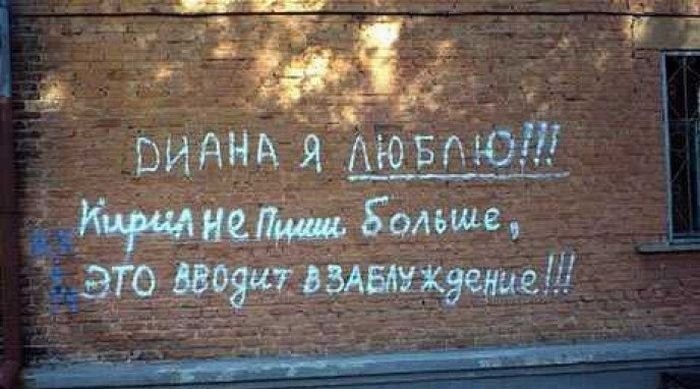 ДИАНА Я ЛЮБЛЮ!!!
Кирил не Пиши больше,
ЭТО ВВОдит В ЗАБЛУждение!!!